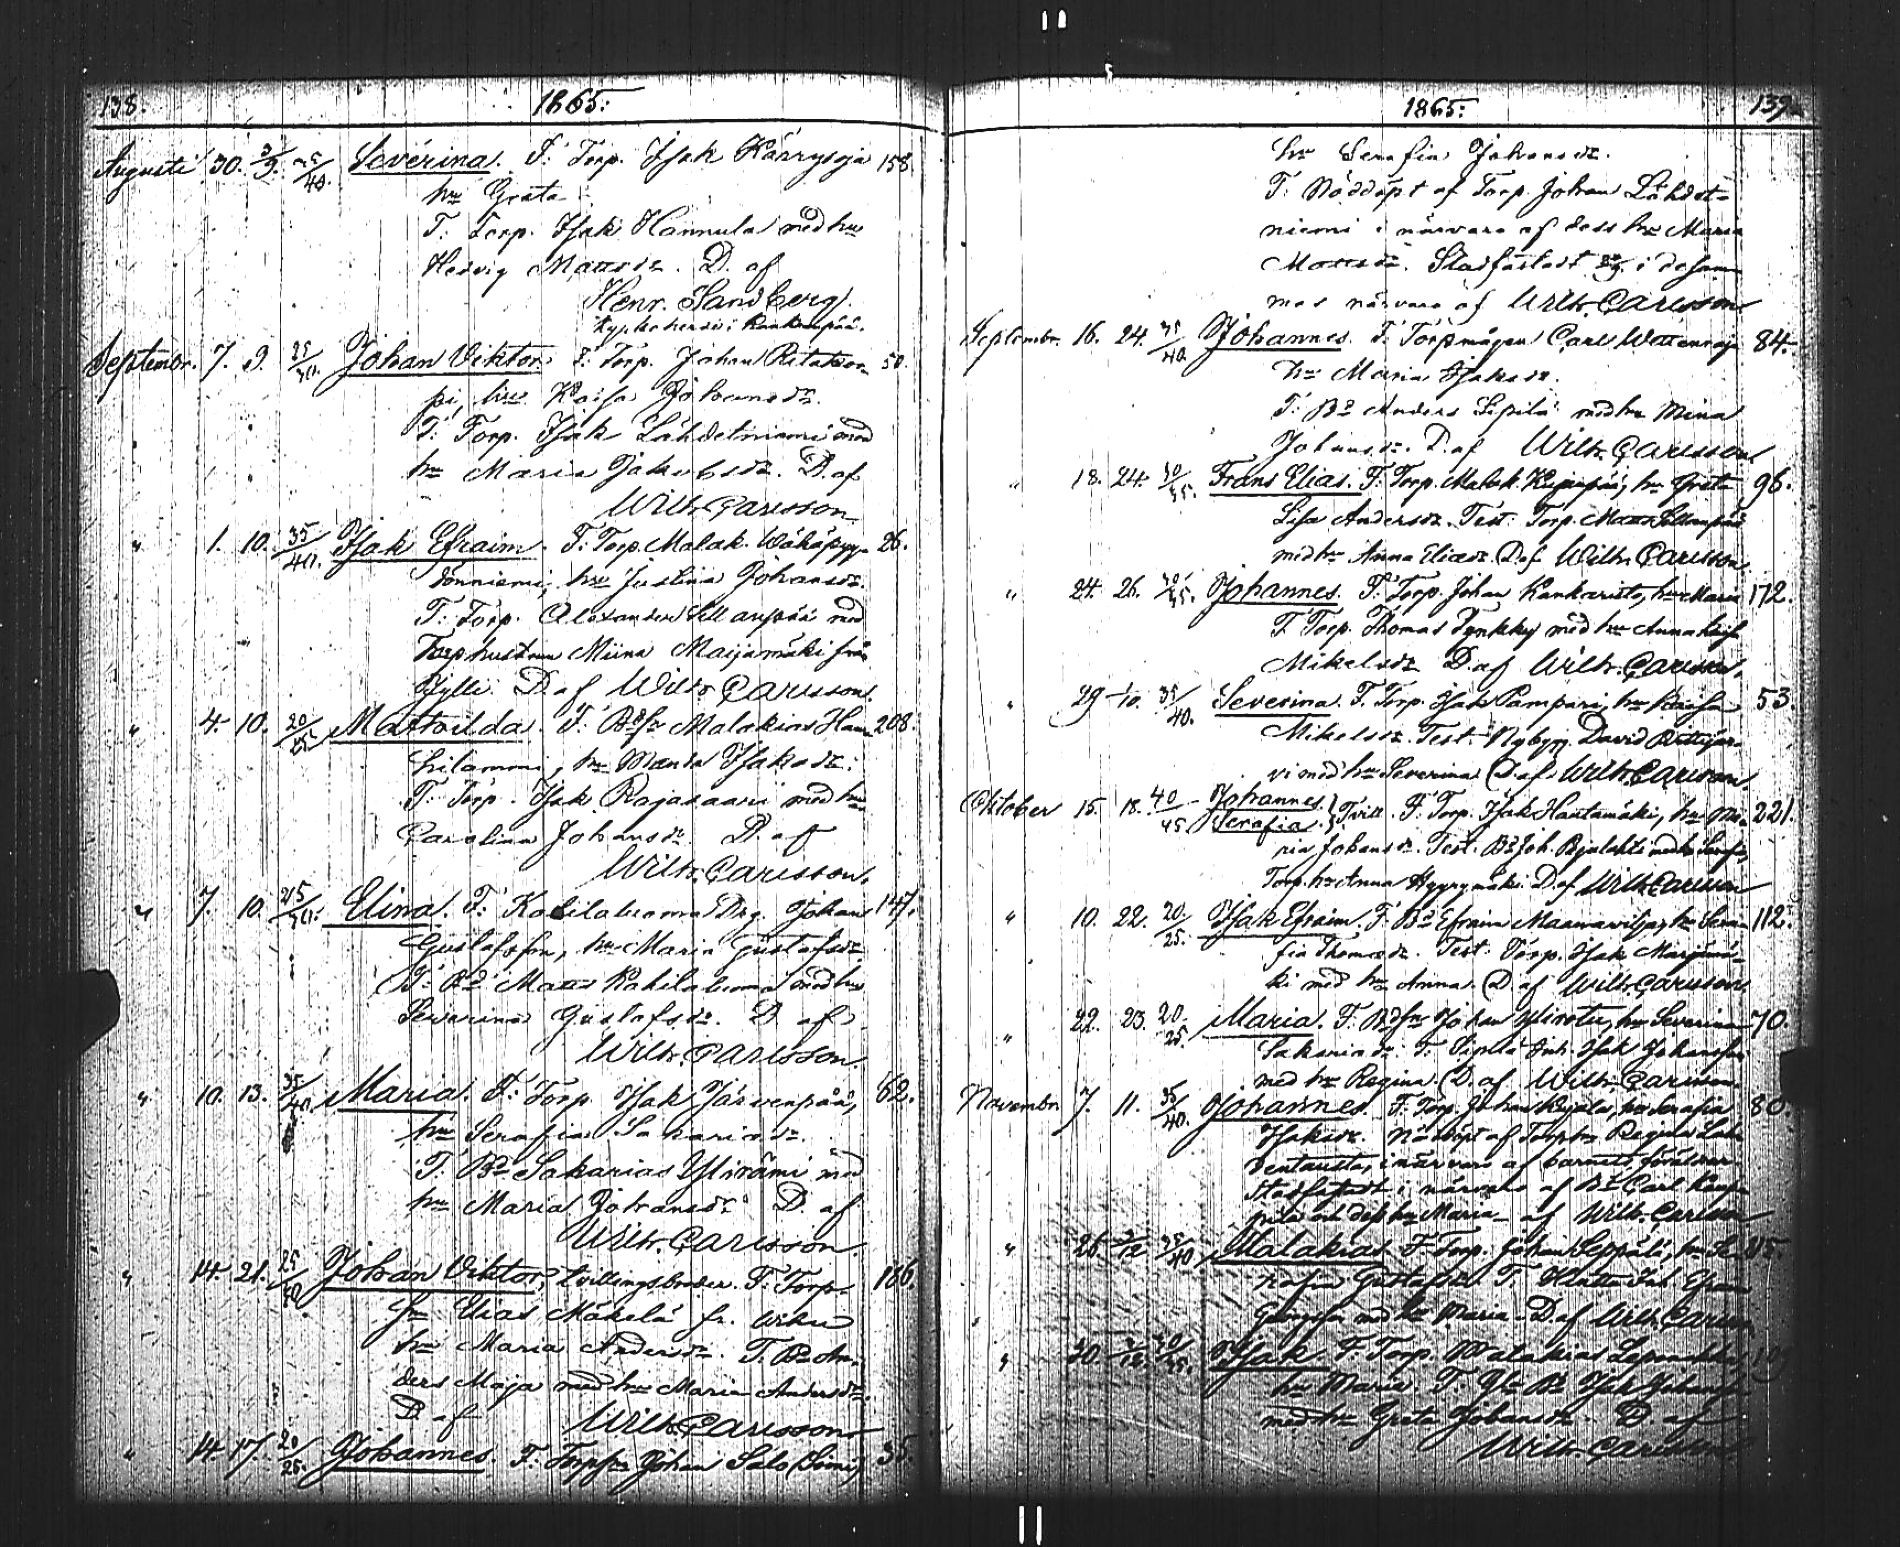 138.
1865.
Augusti 30. 3/9. 35/40. Severina. F: Torp. Isak Kärrysoja 158
hu Greta
T: Torp. Isak Hannula med hu
Hedvig Mattsdr. D. af
Henr. Sandberg.
September 7. 9. 25/30. Johan Viktor. F: Torp. Johan Ritakor- 50.
pi, hu Kaisa Johansdr.
T: Torp. Isak Lähdetniemi med
hu Maria Jakobsdr. D. af
Wilh. Carlsson.
" 1. 10. 35/40. Isak Efraim. F: Torp. Malak. Wähäpyy- 26.
hönniemi, hu Justina Johansdr.
T: Torp. Alexander Sillanpää med
Torphustrun Miina Maijamäki från
Jylli. D. af Wilh. Carlsson.
" 4. 10. 20/25 Matvilda. F: Malakias Han- 208.
hilammi, hu Manda Isaksdr.
T: Torp. Isak Rajasaari med hu
Carolina Johansdr. D. af
Wilh. Carlsson.
" 7. 10. 25/30. Elina. F: Kohilaluoma Drg. Johan 147.
Gustafsson, hu Maria Gustafsdr.
T: Bd Matts Kohilaluoma med hu
Severina Gustafsdr. D. af
Wilh. Carlsson.
" 10. 13. 35/40. Maria. F: Torp. Isak Järvenpää, 62.
hu Serafia Sakariasdr.
T: Bd Sakarias Ylirämi med
hu Maria Johansdr. D. af
Wilh. Carlsson.
" 14. 21. 25/30. Johan Viktor, tvillingsbroder. F: Torp- 186.
Elias Mäkelä fr.
hu Maria Andersdr. T: Bd An-
ders Maja med hu Maria Andersdr.
D. af Wilh. Carlsson.
" 14. 17. 20/25. Johannes. F: Johan Salo 35.
1865.
139.
hu Serafia Johansdr.
T: Nöddöpt af Torp. Johan Lähdet-
niemi i närvaro af dess hu Maria
Mattsdr. Stadfästadt i desam-
mas närvaro af Wilh. Carlsson.
September. 16. 24. 35/40. Johannes. F: Torpmågen Carl Wattenoja 84.
hu Maria Isaksdr.
T: Bd Anders Sipilä med hu Mina
Johansdr. D. af Wilh. Carlsson.
" 18. 24. 30/35. Frans Elias. F: Torp. Malak. hu Greta 96.
Lisa Andersdr. Test: Torp. Matts Sillanpää
med hu Anna Eliasdr. D. af Wilh. Carlsson.
" 24. 26. Johannes. F: Torp. Johan Kankaristo, hu Maria 172.
T: Torp. Thomas Tynkky med hu Anna Kaisa
Mikelsdr. D. af Wilh. Carlsson.
" 29 1/10. 35/40. Severina. F: Torp. Isak Pampari, hu Kaisa 53.
Mikelsdr. Test: Nybygg. David
vi med hu Severina. D. af Wilh. Carlsson.
Oktober 15. 18. 40/45 Johannes. Serafia. } Tvill. F: Torp. Isak Hautamäki, hu Ma- 221.
ria Johansdr. Test: Bd Joh. med hu
Torp. hu Anna Hyyrymäki. D. af Wilh. Carlsson
" 10. 22. 20/25. Isak Efraim. F: Bd Efraim hu Sera- 112.
fia Thomasdr. Test: Torp. Isak Marjamä-
ki med hu Anna. D. af Wilh. Carlsson
" 22. 23. 20/25. Maria. F: Johan hu Severina 70.
Sakariasdr. T: Sipilä Inh. Isak Johansson
med hu Regina. D. af Wilh. Carlsson.
November 7. 11. 35/40. Johannes. F: Torp. Johan hu Serafia 80.
Isaksdr. Nöddöpt af Regina
i närvaro af barnets föräldrar.
Stadfästadt i närvaro af Bd Carl
och dess hu Maria af Wilh. Carlsson
" 26. Malakias. F: Torp. Johan Seppälä, hu Se-
rafia Gustafsdr. T:
med hu Maria. D. af Wilh. Carlsson
" 30. Isak. F: Torp. Malakias
hu Maria. T: Isak
med hu Greta Johansdr. D. af
Wilh. Carlsson.